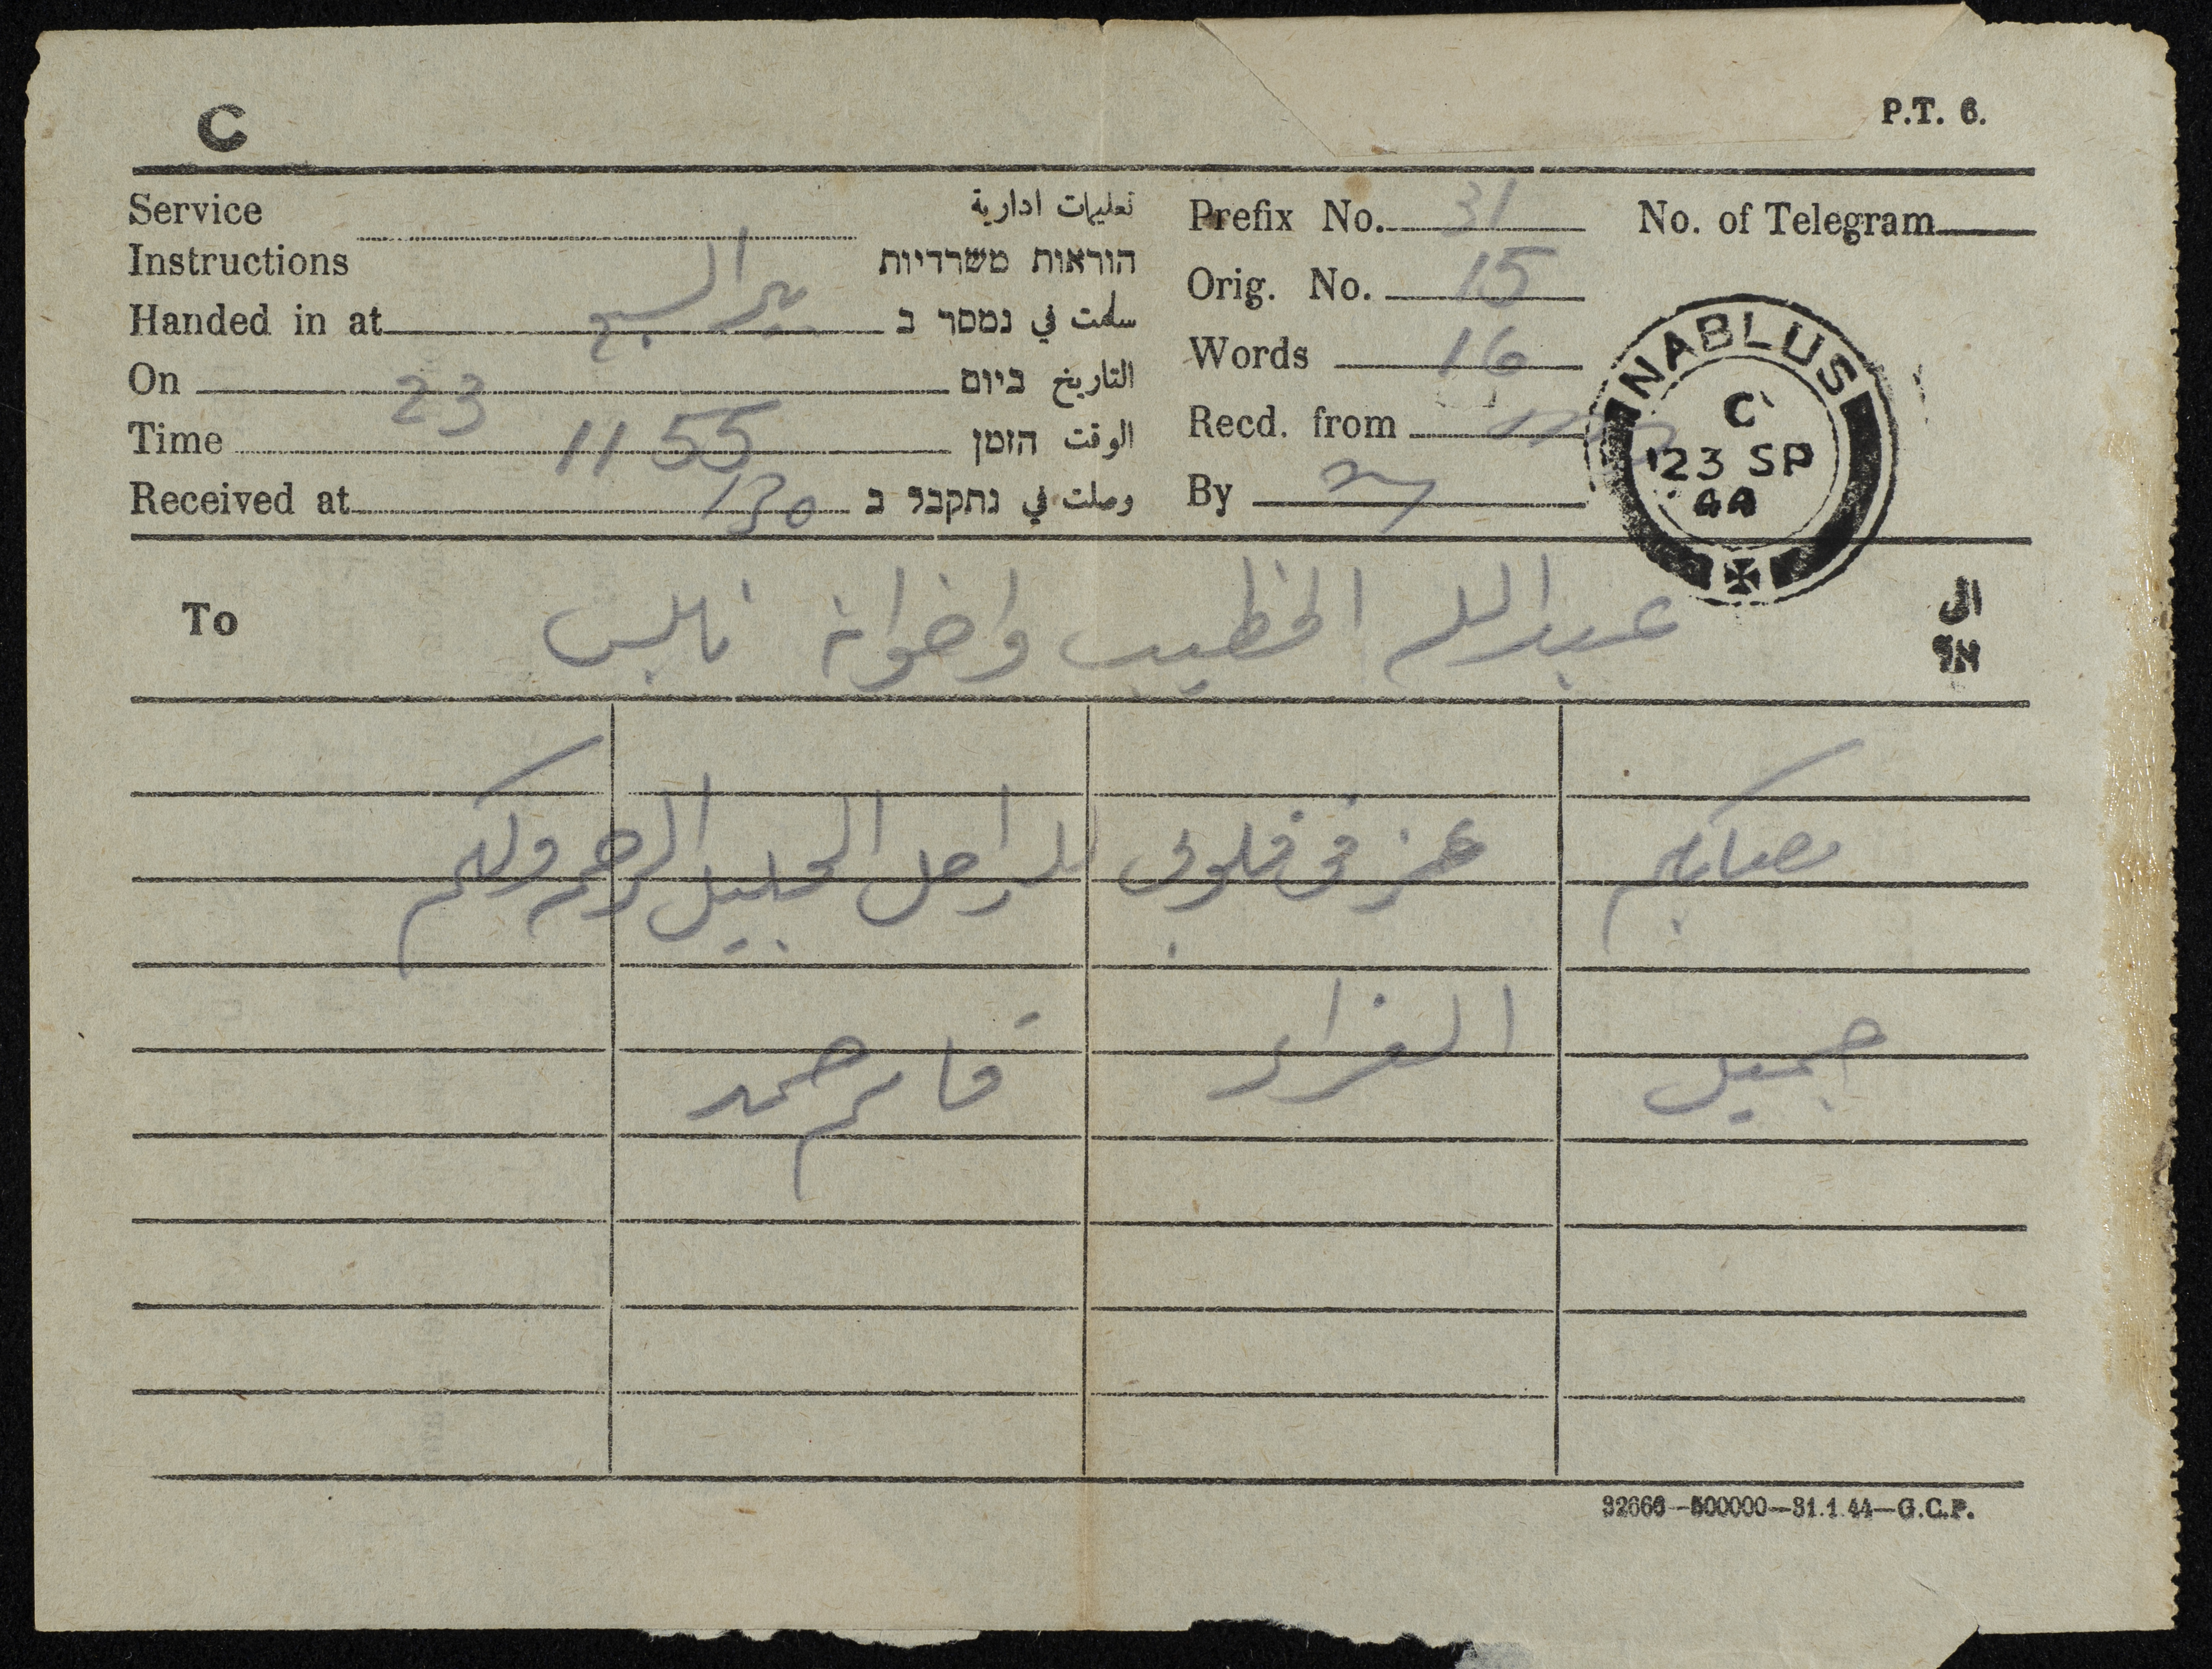 C
P.T. 6.
Service Instructions تعليمات ادارية הוראות משרדיות
Handed in at بير السبع سلمت في נמסר ב
On 23 التاريخ ביום
Time 11 55 الوقت הזמן
Received at 130 وصلت في נתקבל ב
Prefix No. 31 No. of Telegram
Orig. No. 15
Words 16
Recd. from
By
NABLUS
C
23 SP
44
To عبدالله الخطيب واخوانه نابلس الى אל
مصابكم عز في قلوبي للراحل الجليل الرحمه ولكم
جميل العزاء
32666-500000-31.1.44-G.C.P.